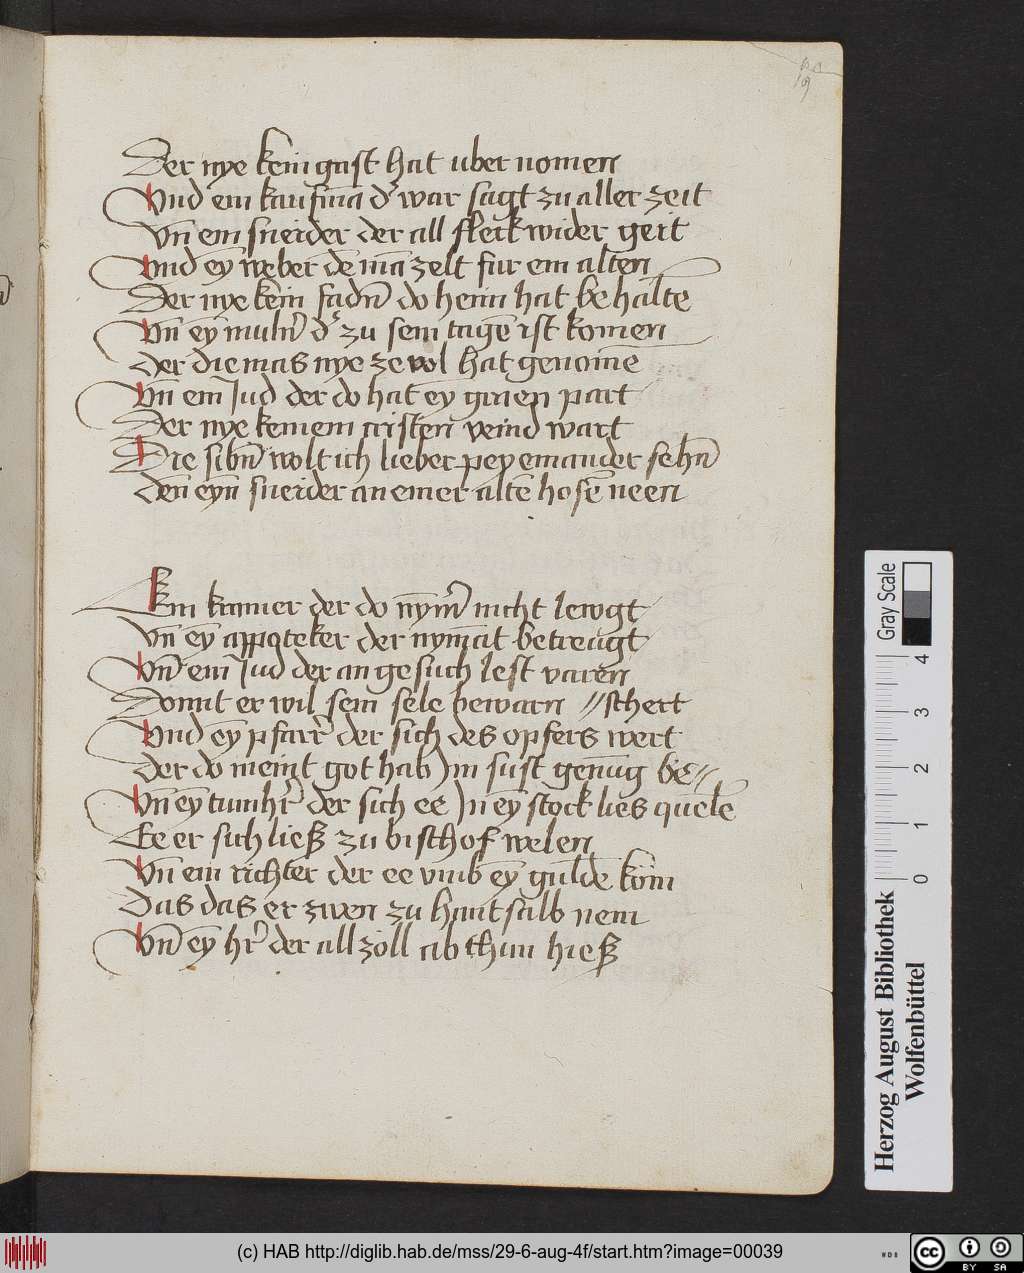 19
Der nye kein gast hat uber nomen
Vnd ein kaufmā d' war sagt zu aller zeit
Vn̄ ein sneider der all fleck wider geit
Vnd ey̅ weber de̅ mā zelt fur ein alten
Der nye kein fadn̄ do hein̄ hat behalte
Vn̄ ey̅ muln̄' d' zu sein tage̅ ist komen
der die mas nye ze vol hat genome̅
Vn̄ ein Jud der do hat ey̅ graen part
Der nye keinem cristen veind wart
Die sibn̄ wolt ich lieber pey einander sehn̄
den̅ eyn̄ sneider an einer alte̅ hose̅ neen
Ein kramer der do nym̄' nicht lewgt
Vn̄ ey̅ appoteker der nym̄āt betreugt
Vn̄ ein Jud der an gesuch lest varen
Domit er wil sein sele bewarn // schert
Vnd ey̅ pfarr' der sich des opfers wert
der do meint got hab Jm sust genūg be //
Vn̄ ey̅ tumhr̄' der sich ee Jn ey̅ stock lies quele̅
Ee er sich ließ zu bischof welen
Vn̄ ein richter der ee vmb ey̅ gulde̅ kom̄
Das das er zwen zu hantsalb nem
Vn̄ ey̅ hr̄' der all zoll ab thun hieß
Herzog August Bibliothek
Wolfenbüttel
0 1 2 3 4
Gray Scale
(c) HAB http://diglib.hab.de/mss/29-6-aug-4f/start.htm?image=00039
WDB
cc BY SA